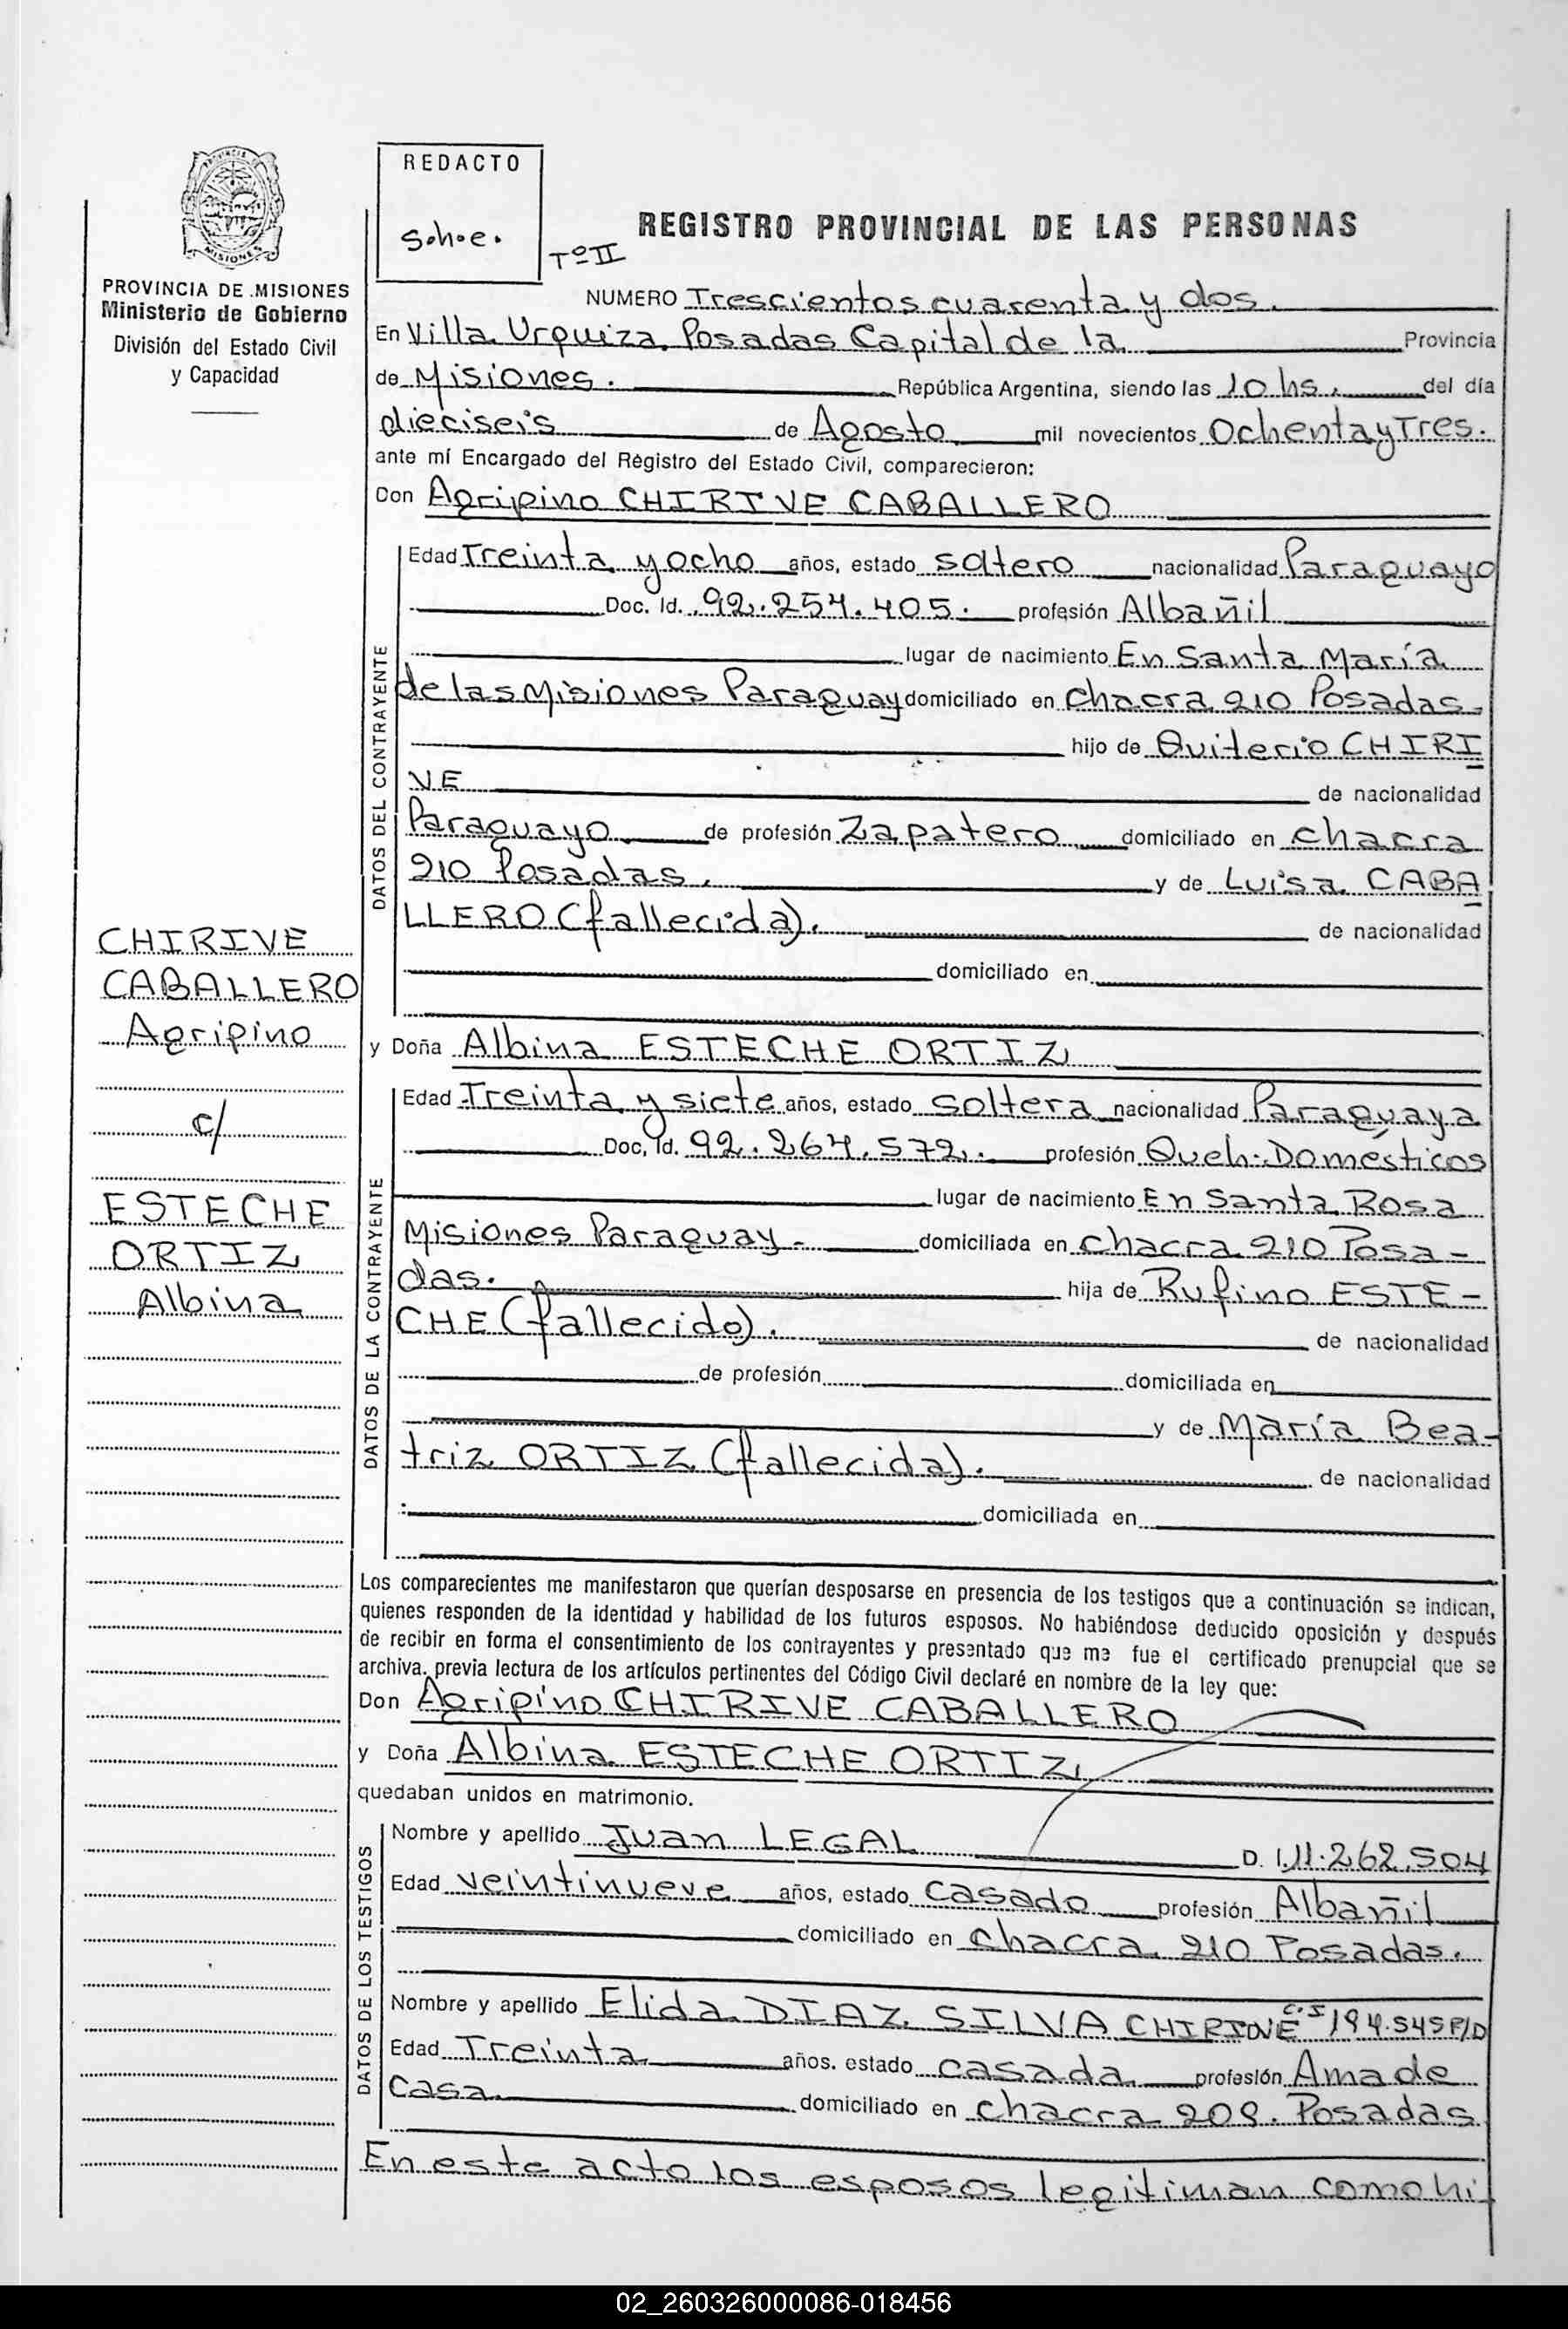 REDACTO
S.h.e.
Tº II
REGISTRO PROVINCIAL DE LAS PERSONAS
MISIONES
PROVINCIA DE MISIONES
Ministerio de Gobierno
División del Estado Civil
y Capacidad
CHIRIVE
CABALLERO
Agripino
c/
ESTECHE
ORTIZ
Albina
NUMERO Trescientos cuarenta y dos.
En Villa Urquiza, Posadas Capital de la Provincia
de Misiones. República Argentina, siendo las 10 hs. del día
dieciseis de Agosto mil novecientos Ochenta y Tres.
ante mí Encargado del Registro del Estado Civil, comparecieron:
Don Agripino CHIRIVE CABALLERO
DATOS DEL CONTRAYENTE
Edad Treinta y ocho años, estado soltero nacionalidad Paraguayo
Doc. Id. 92.254.405. profesión Albañil
lugar de nacimiento En Santa María
de las Misiones Paraguay domiciliado en chacra 210 Posadas.
hijo de Quiterio CHIRI
VE de nacionalidad
Paraguayo de profesión Zapatero domiciliado en chacra
210 Posadas. y de Luisa CABA
LLERO (fallecida). de nacionalidad
domiciliado en
y Doña Albina ESTECHE ORTIZ
DATOS DE LA CONTRAYENTE
Edad Treinta y siete años, estado soltera nacionalidad Paraguaya
Doc. Id. 92.264.572. profesión Queh. Domésticos
lugar de nacimiento En Santa Rosa
Misiones Paraguay - domiciliada en chacra 210 Posa-
das. hija de Rufino ESTE-
CHE (fallecido). de nacionalidad
de profesión domiciliada en
y de María Bea-
triz ORTIZ (fallecida). de nacionalidad
domiciliada en
Los comparecientes me manifestaron que querían desposarse en presencia de los testigos que a continuación se indican,
quienes responden de la identidad y habilidad de los futuros esposos. No habiéndose deducido oposición y después
de recibir en forma el consentimiento de los contrayentes y presentado que me fue el certificado prenupcial que se
archiva, previa lectura de los artículos pertinentes del Código Civil declaré en nombre de la ley que:
Don Agripino CHIRIVE CABALLERO
y Doña Albina ESTECHE ORTIZ
quedaban unidos en matrimonio.
DATOS DE LOS TESTIGOS
Nombre y apellido Juan LEGAL D. I. 11.262.504
Edad veintinueve años, estado casado profesión Albañil
domiciliado en chacra 210 Posadas.
Nombre y apellido Elida DIAZ SILVA CHIRIVE C.I 194.545 P/D
Edad Treinta años, estado casada profesión Ama de
Casa domiciliado en chacra 208. Posadas
En este acto los esposos legitiman como hi-
02_260326000086-018456